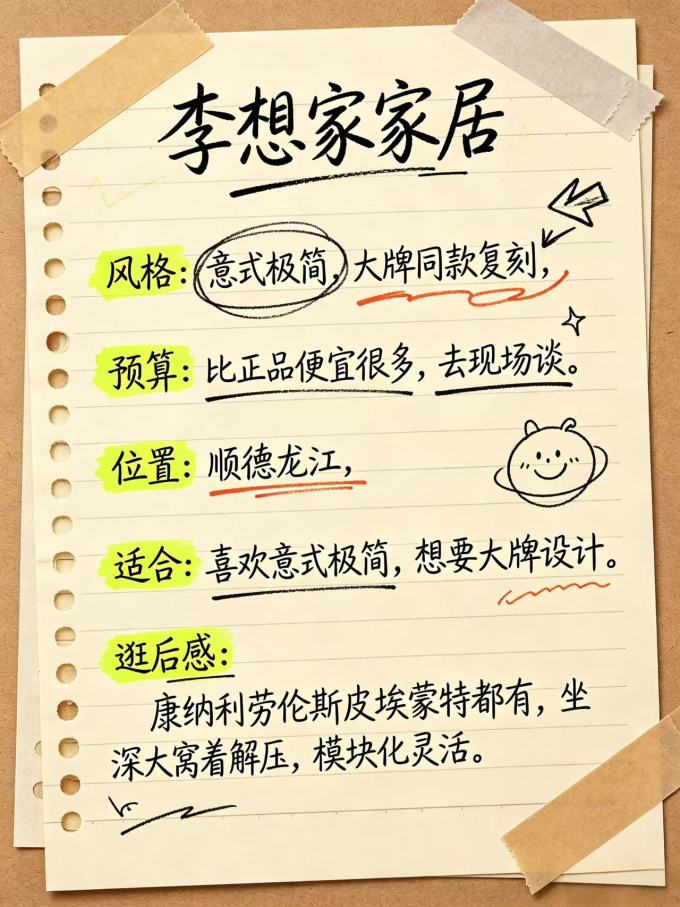 李想家家居
风格：意式极简，大牌同款复刻，
预算：比正品便宜很多，去现场谈。
位置：顺德龙江，
适合：喜欢意式极简，想要大牌设计。
逛后感：
康纳利劳伦斯皮埃蒙特都有，坐
深大窝着解压，模块化灵活。